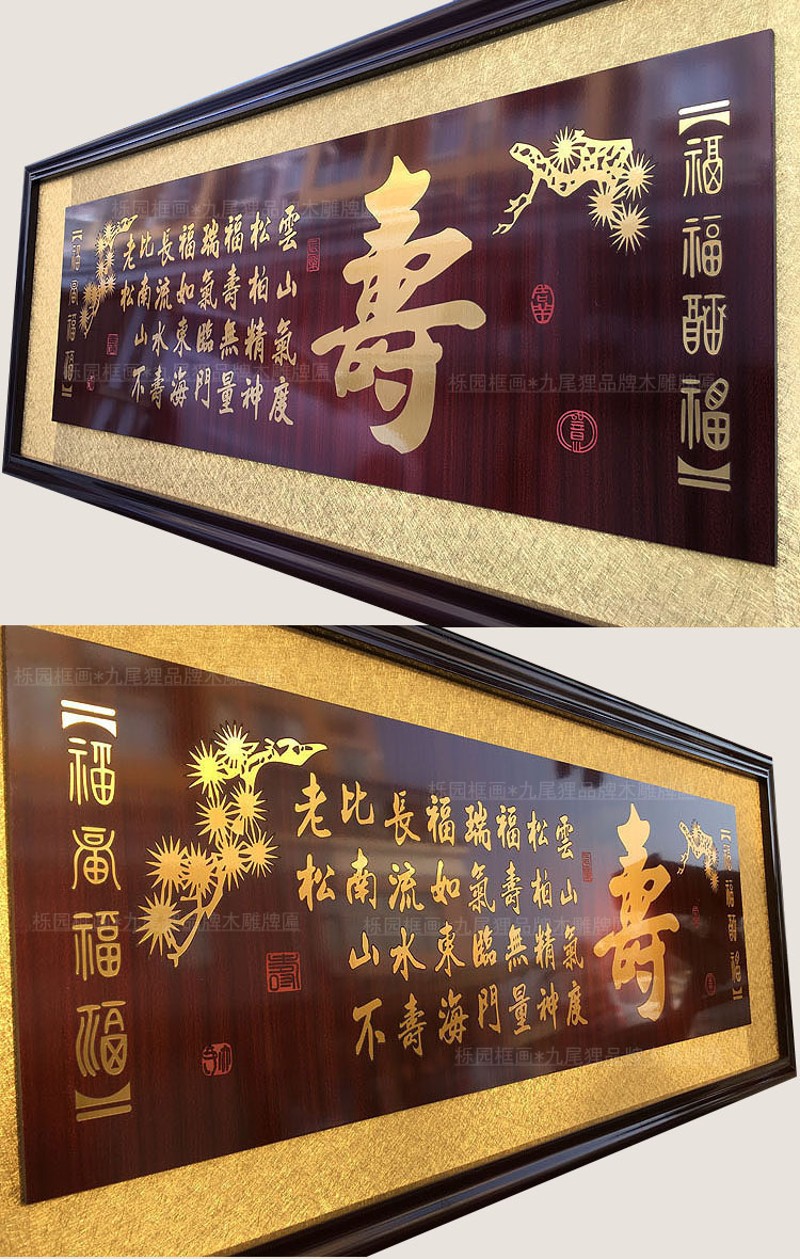 栎园框画*九尾狸品牌木雕牌匾
福福福
壽
雲山氣度
松柏精神
福壽無量
瑞氣臨門
福如東海
長流水壽
比南山不
老松
栎园框画*九尾狸品牌木雕牌匾
栎园框画*九尾狸品牌木雕牌匾
栎园框画*九尾狸品牌木雕牌匾
栎园框画*九尾狸品牌木雕牌匾
壽
雲山氣度
松柏精神
福壽無量
瑞氣臨門
福如東海
長流水壽
比南山不
老松
壽
福福福
栎园框画*九尾狸品牌木雕牌匾
栎园框画*九尾狸品牌木雕牌匾
栎园框画*九尾狸品牌木雕牌匾